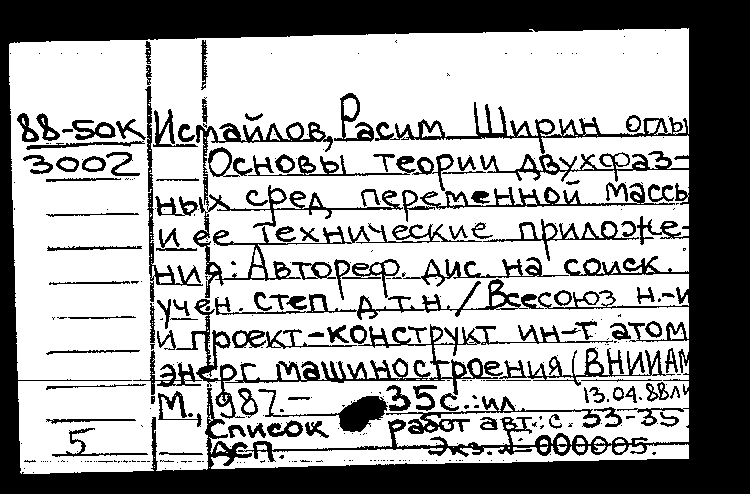 88-50К Исмайлов, Расим Ширин оглы
3002 Основы теории двухфаз-
ных сред переменной массы
и ее технические приложе-
ния: Автореф. дис. на соиск.
учен. степ. д.т.н. / Всесоюз н.-и
и проект.-конструкт ин-т атом
энерг. машиностроения (ВНИИАМ
М., 1987.- 35с.:ил. 13.04.88
5 Список работ авт.: с. 33-35.
ДСП. Экз. № 000005.